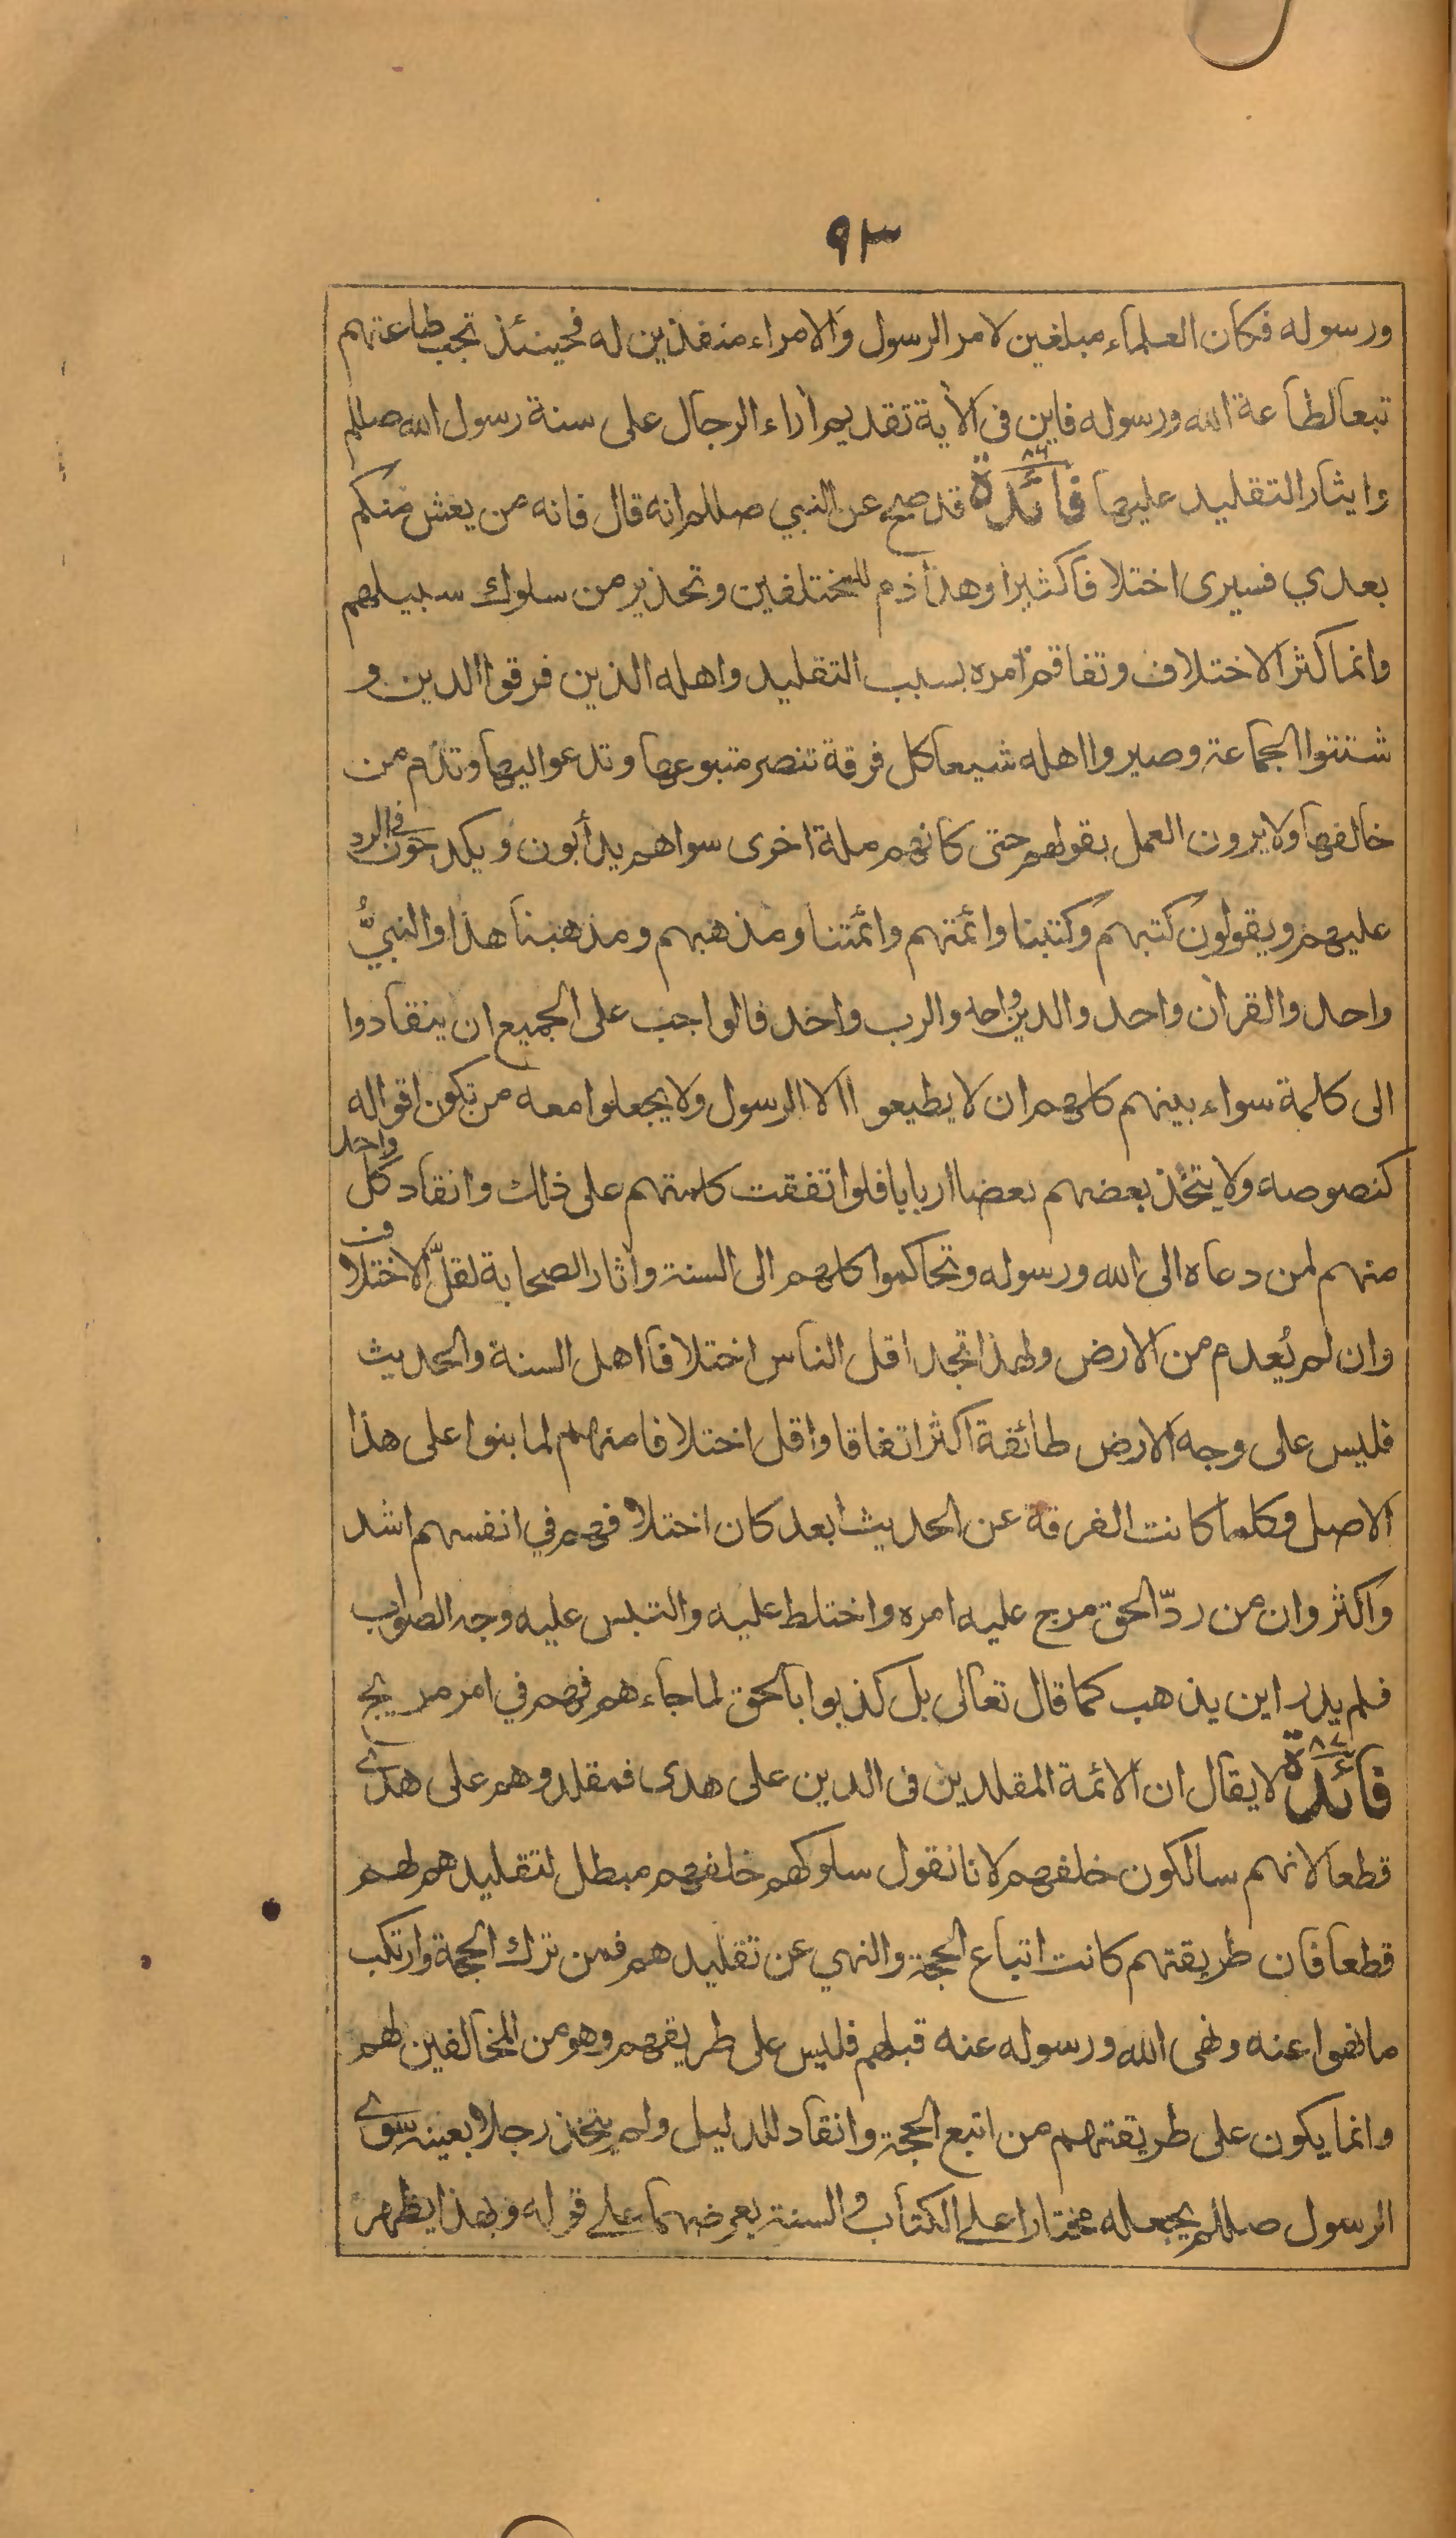 ٩٣
ورسوله فكان العلماء مبلغين لامر الرسول والامراء منفذين له فحينئذ تجب طاعتهم
تبعا لطاعة الله ورسوله فاين فى الأية تقديم أراء الرجال على سنة رسول الله صللم
وايثار التقليد عليها فائدة ٨٦ قد صح عن النبي صللم انه قال فانه من يعش منكم
بعدي فسيرى اختلافا كثيرا وهذا ذم للمختلفين وتحذير من سلوك سبيلهم
وانما كثر الاختلاف وتفاقم امره بسبب التقليد واهله الذين فرقوا الدين و
شتتوا الجماعة وصيروا اهله شيعا كل فرقة تنصر متبوعها وتدعوا اليها وتذم من
خالفها ولا يرون العمل بقولهم حتى كانهم ملة اخرى سواهم يدأبون ويكدحون في الرد
عليهم ويقولون كتبهم وكتبنا وائمتهم وائمتنا ومذهبهم ومذهبنا هذا والنبيُّ
واحد والقرأن واحد والدين واحد والرب واحد فالواجب على الجميع ان ينقادوا
الى كلمة سواء بينهم كلهم ان لا يطيعوا الا الرسول ولا يجعلوا معه من تكون اقواله
كنصوصه ولا يتخذ بعضهم بعضا اربابا فلو اتفقت كلمتهم على ذلك وانقاد كل واحد
منهم لمن دعاه الى الله ورسوله وتحاكموا كلهم الى السنة وأثار الصحابة لقلّ الاختلاف
وان لم يُعدم من الارض ولهذا تجد اقل الناس اختلافا اهل السنة والحديث
فليس على وجه الارض طائفة اكثر اتفاقا واقل اختلافا منهم لما بنوا على هذا
الاصل وكلما كانت الفرقة عن الحديث ابعد كان اختلافهم في انفسهم اشد
واكثر وان من ردّ الحق مرج عليه امره واختلط عليه والتبس عليه وجه الصواب
فلم يدر اين يذهب كما قال تعالى بل كذبوا بالحق لما جاءهم فهم في امر مريج
فائدة ٨٧ لا يقال ان الائمة المقلدين فى الدين على هدى فمقلدوهم على هدى
قطعا لانهم سالكون خلفهم لانا نقول سلوكهم خلفهم مبطل لتقليدهم لهم
قطعا فان طريقتهم كانت اتباع الحجة والنهي عن تقليدهم فمن ترك الحجة وارتكب
ما نهوا عنه ونهى الله ورسوله عنه قبلهم فليس على طريقهم وهو من المخالفين لهم
وانما يكون على طريقتهم من اتبع الحجة وانقاد للدليل ولم يتخذ رجلا بعينه سوى
الرسول صللم يجعله مختارا على الكتاب والسنة يعرضهما على قوله وبهذا يظهر